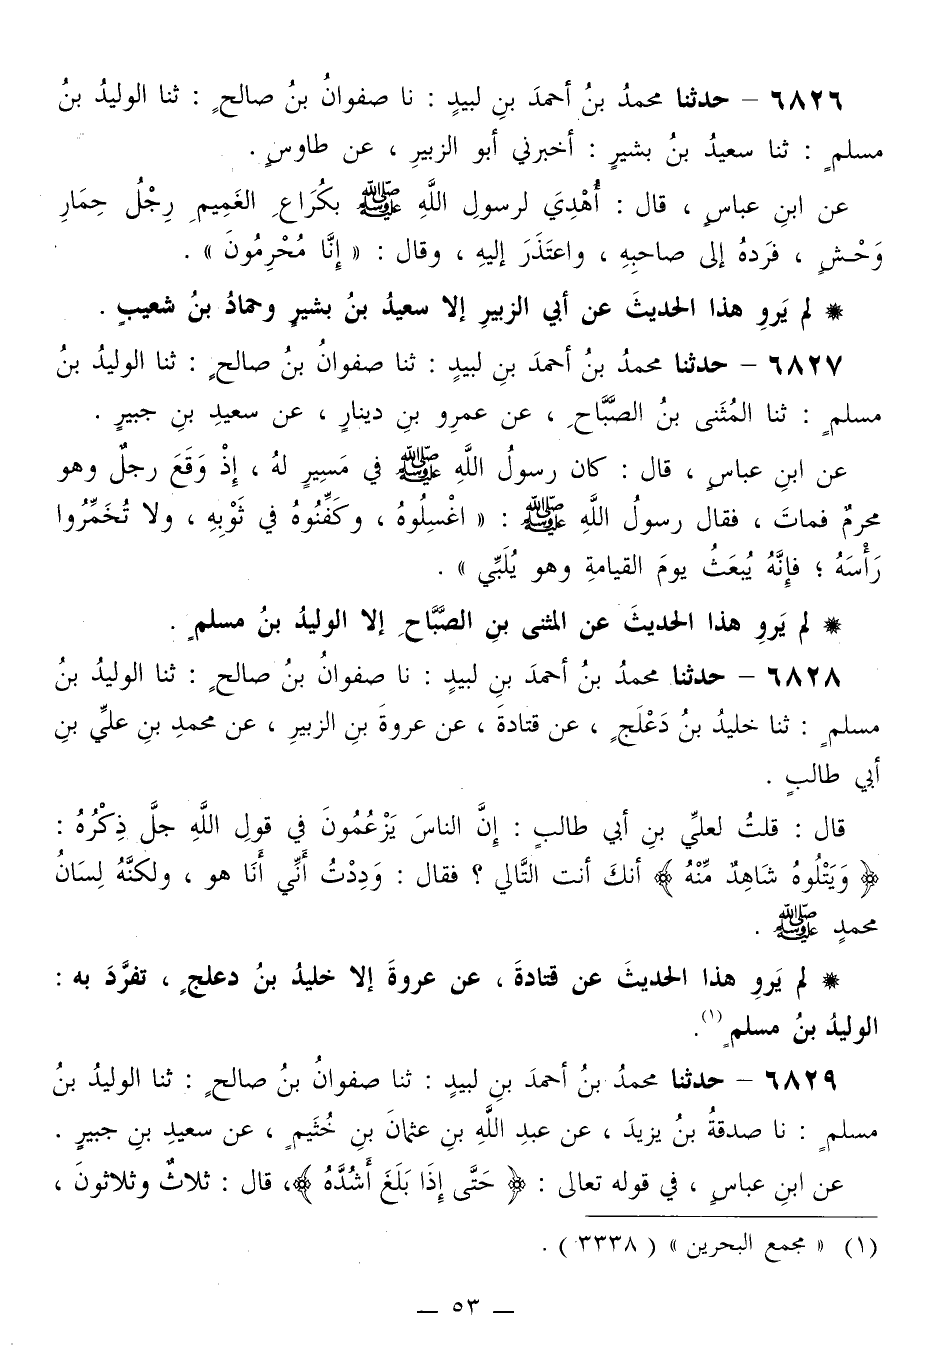 ٦٨٢٦ – حدثنا محمدُ بنُ أحمدَ بنِ لبيدٍ : نا صفوانُ بنُ صالحٍ : ثنا الوليدُ بنُ
مسلمٍ : ثنا سعيدُ بنُ بشيرٍ : أخبرني أبو الزبيرِ ، عن طاوسٍ .
عن ابنِ عباسٍ ، قال : أُهْدِيَ لرسولِ اللَّهِ ﷺ بكُرَاعِ الغَمِيمِ رِجْلُ حِمَارِ
وَحْشٍ ، فَردهُ إلى صاحبِهِ ، واعتَذَرَ إليهِ ، وقال : « إِنَّا مُحْرِمُونَ » .
* لم يَروِ هذا الحديثَ عن أبي الزبيرِ إلا سعيدُ بنُ بشيرٍ وحمادُ بنُ شعيبٍ .
٦٨٢٧ – حدثنا محمدُ بنُ أحمدَ بنِ لبيدٍ : ثنا صفوانُ بنُ صالحٍ : ثنا الوليدُ بنُ
مسلمٍ : ثنا المُثَنى بنُ الصَّبَّاحِ ، عن عمرِو بنِ دينارٍ ، عن سعيدِ بنِ جبيرٍ .
عن ابنِ عباسٍ ، قال : كان رسولُ اللَّهِ ﷺ في مَسِيرٍ لهُ ، إِذْ وَقَعَ رجلٌ وهو
محرمٌ فماتَ ، فقال رسولُ اللَّهِ ﷺ : « اغْسِلُوهُ ، وكَفِّنُوهُ في ثَوْبِهِ ، ولا تُخَمِّرُوا
رَأْسَهُ ؛ فإِنَّهُ يُبعَثُ يومَ القيامةِ وهو يُلَبِّي » .
* لم يَروِ هذا الحديثَ عن المثنى بنِ الصَّبَّاحِ إلا الوليدُ بنُ مسلمٍ .
٦٨٢٨ – حدثنا محمدُ بنُ أحمدَ بنِ لبيدٍ : نا صفوانُ بنُ صالحٍ : ثنا الوليدُ بنُ
مسلمٍ : ثنا خليدُ بنُ دَعْلَجٍ ، عن قتادةَ ، عن عروةَ بنِ الزبيرِ ، عن محمدِ بنِ عليِّ بنِ
أبي طالبٍ .
قال : قلتُ لعليِّ بنِ أبي طالبٍ : إنَّ الناسَ يَزْعُمُونَ في قولِ اللَّهِ جلَّ ذِكْرُهُ :
﴿ وَيَتْلُوهُ شَاهِدٌ مِّنْهُ ﴾ أنكَ أنت التَّالي ؟ فقال : وَدِدْتُ أَنِّي أَنَا هو ، ولكنَّهُ لِسَانُ
محمدٍ ﷺ .
* لم يَروِ هذا الحديثَ عن قتادةَ ، عن عروةَ إلا خليدُ بنُ دعلجٍ ، تفرَّدَ به :
الوليدُ بنُ مسلمٍ (١).
٦٨٢٩ – حدثنا محمدُ بنُ أحمدَ بنِ لبيدٍ : ثنا صفوانُ بنُ صالحٍ : ثنا الوليدُ بنُ
مسلمٍ : نا صدقةُ بنُ يزيدَ ، عن عبدِ اللَّهِ بنِ عثمانَ بنِ خُثَيمٍ ، عن سعيدِ بنِ جبيرٍ .
عن ابنِ عباسٍ ، في قوله تعالى : ﴿ حَتَّى إِذَا بَلَغَ أَشُدَّهُ ﴾، قال : ثلاثٌ وثلاثونَ ،
(١) « مجمع البحرين » ( ٣٣٣٨ ) .
— ٥٣ —